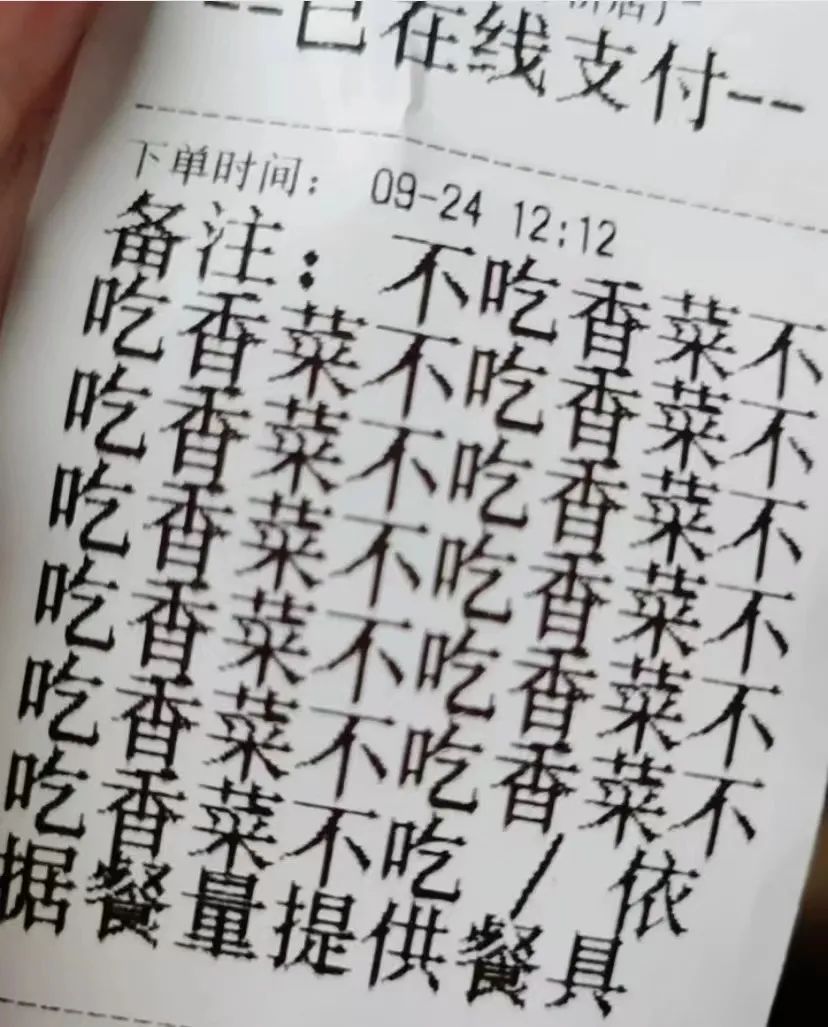 --已在线支付--
下单时间: 09-24 12:12
备注: 不吃香菜不
吃香菜不吃香菜不
吃香菜不吃香菜不
吃香菜不吃香菜不
吃香菜不吃香菜不
吃香菜不吃香菜不
吃香菜不吃/依
据餐量提供餐具